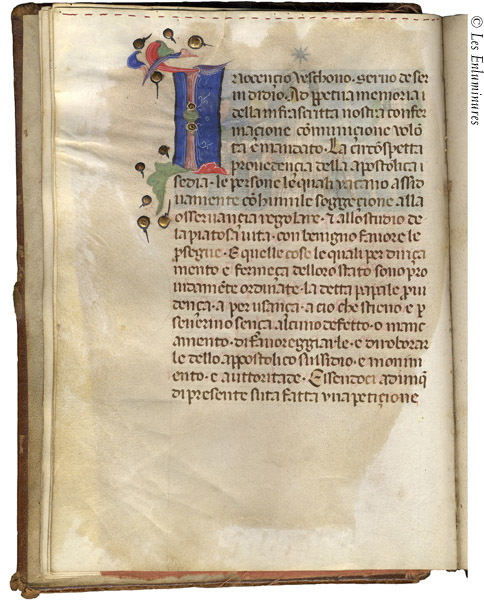 Innocençio veschovo · servo de ser
vi didio · Ad ppetua memoria i
della infrascritta nostra confer
maçione comuniçione volō
tà e mandato · La circospetta
providencia della apostolica i
sedia · le persone le quali vacano assid
uamente cō humile soggeçione alla
osservancia regolare · ⁊ allo studio de
la piatosa vita · con benigno favore le
psegue · E quelle cose le quali per dinça
mento e fermeça delloro stato sono pro
vidamēte ordinate · la detta papale p̱ui
dença · a per usança · a cio che stieno e p
severino sença alcuno defetto · o manc
amento · di favoreggiarle · e di roborar
le dello appostolico sussidio · e monim
ento · e auttoritade · Essendoci adunq̄
di presente suta fatta una petiçione
© Les Enluminures